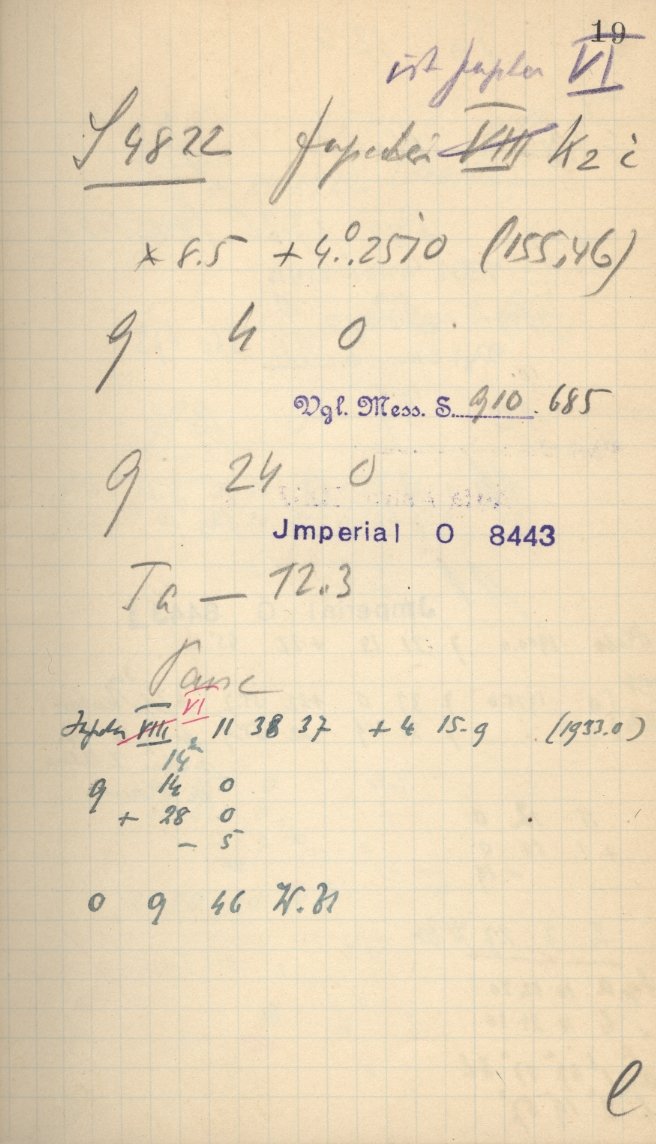 19
ist Jupiter VI
S 4822 Jupiter VIII K2 i
x 8.5 + 4.°25'0 (155,46)
9 4 0
Vgl. Mess. S. 910.685
9 24 0
Jmperial O 8443
Ta — 12.3
Pause
VI
Jupiter VIII 11 38 37 + 4 15.9 (1933.0)
14m
9 14 0
+ 28 0
- 5
0 9 46 W.Zt
e